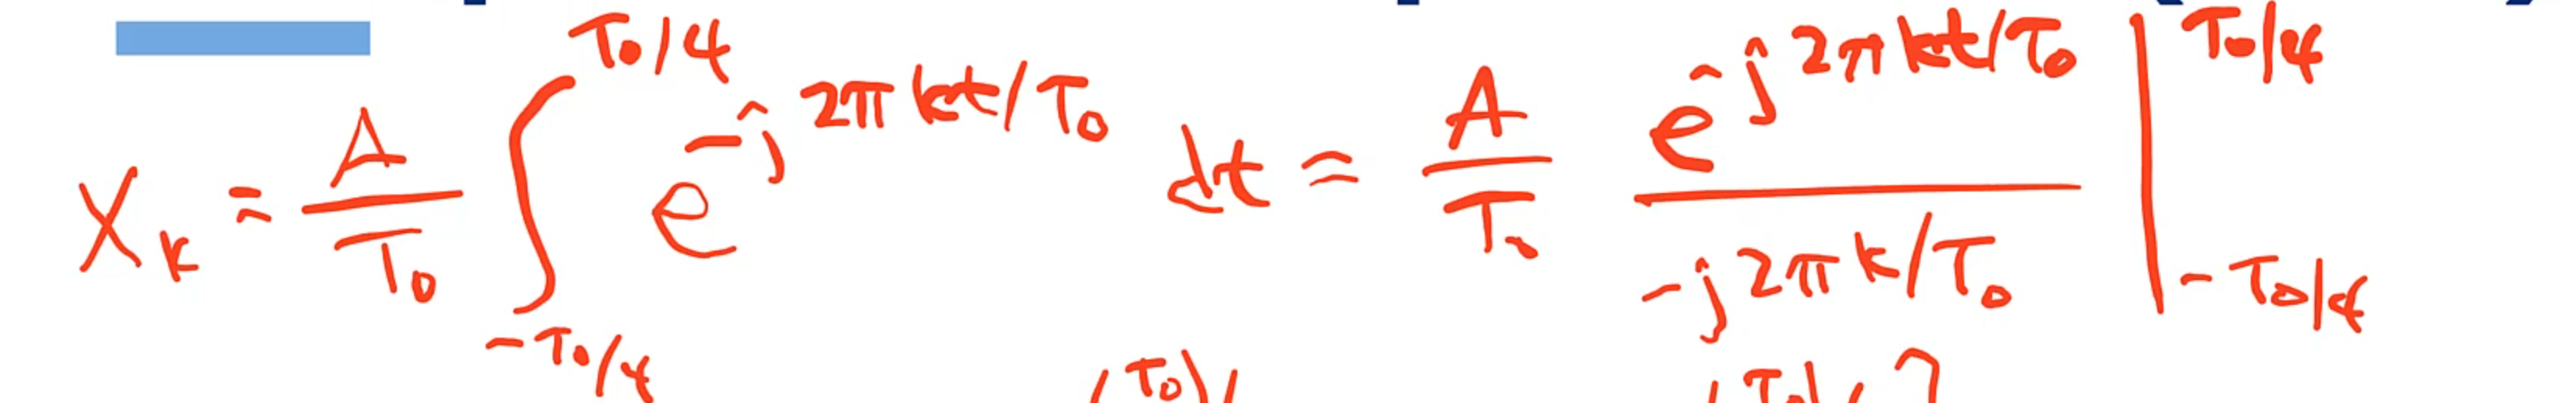 X_k = A/T₀ ∫_{-T₀/4}^{T₀/4} e^{-j2πkt/T₀} dt = A/T₀ e^{-j2πkt/T₀}/(-j2πk/T₀) |_{-T₀/4}^{T₀/4}